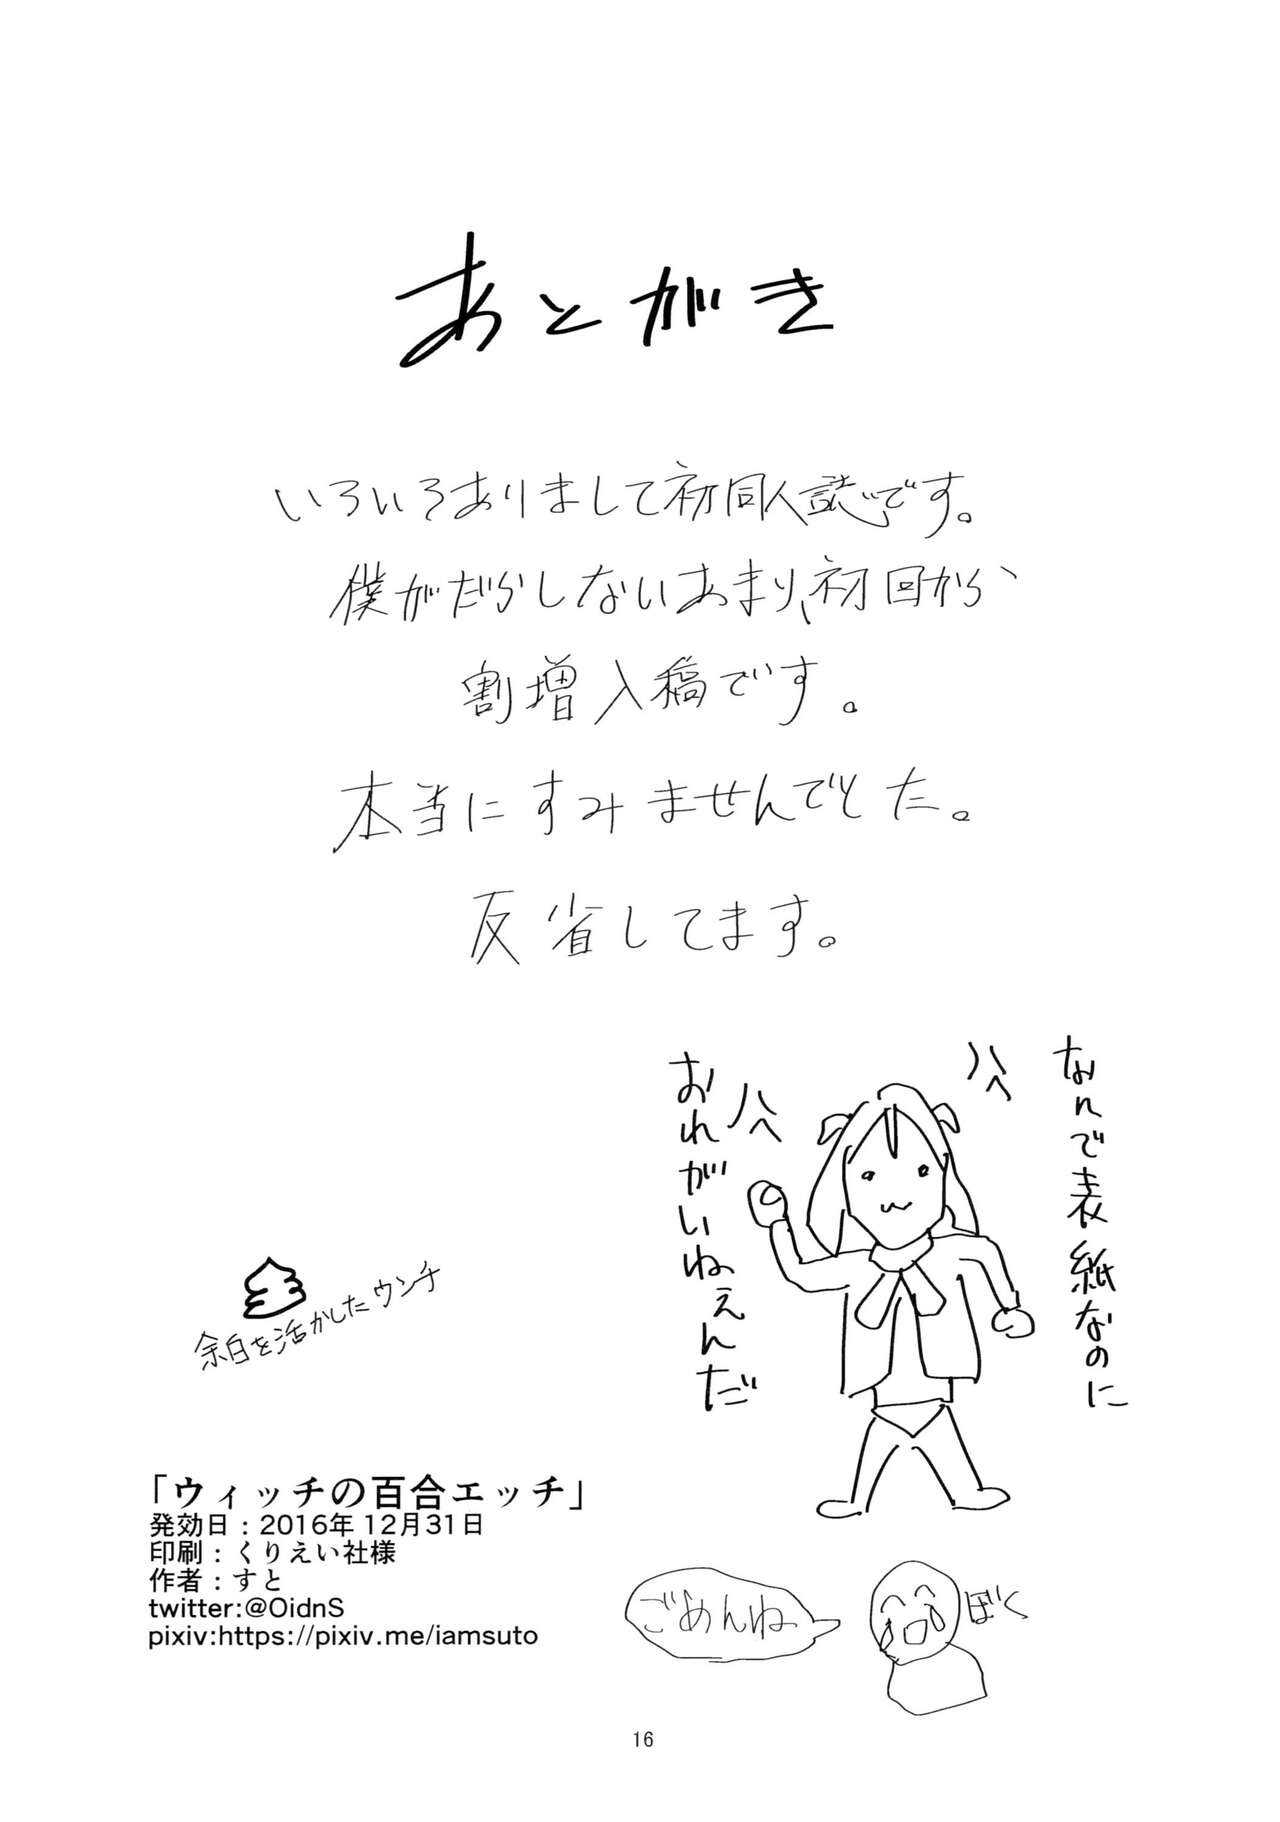 あとがき
いろいろありまして初同人誌です。
僕がだらしないあまり、初回から、
割増入稿です。
本当にすみませんでした。
反省してます。
なんで表紙なのに
おれがいねえんだ
余白を活かしたウンチ
「ウィッチの百合エッチ」
発効日：2016年12月31日
印刷：くりえい社様
作者：すと
twitter:@OidnS
pixiv:https://pixiv.me/iamsuto
ごめんね
ぼく
16